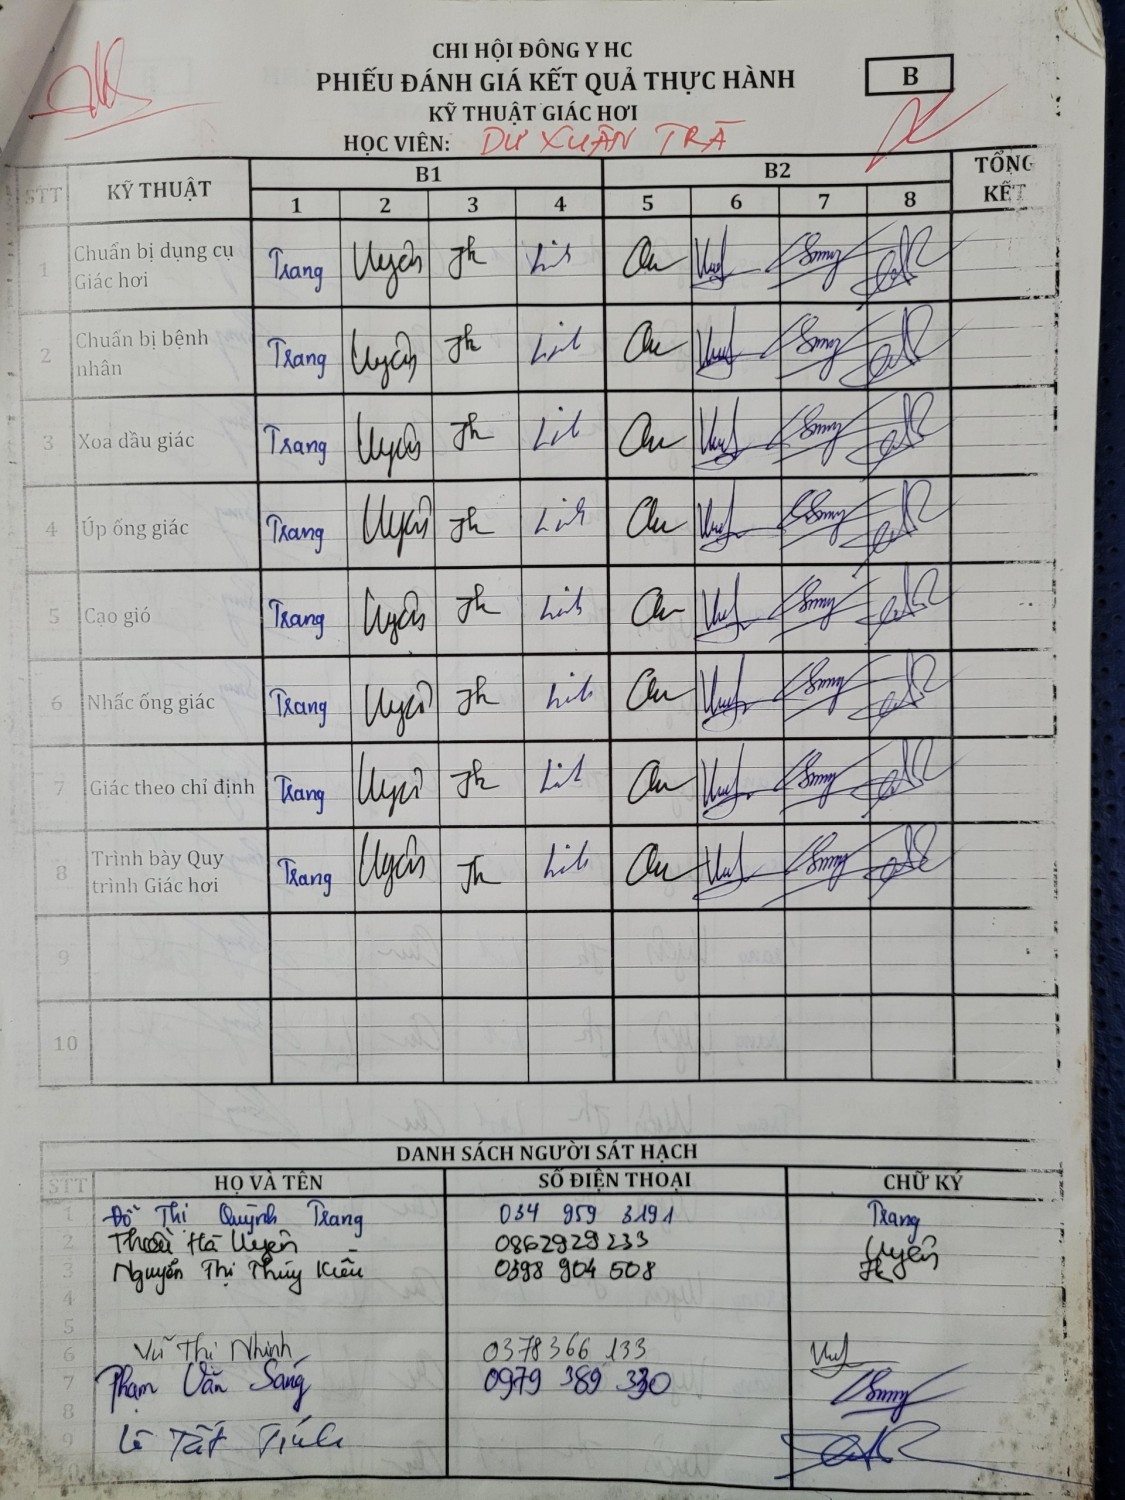 CHI HỘI ĐÔNG Y HC
PHIẾU ĐÁNH GIÁ KẾT QUẢ THỰC HÀNH
B
KỸ THUẬT GIÁC HƠI
HỌC VIÊN: DƯ XUÂN TRÃ
STT KỸ THUẬT B1 B2 TỔNG KẾT
1 2 3 4 5 6 7 8
1 Chuẩn bị dụng cụ Giác hơi Trang Uyên Th Linh
2 Chuẩn bị bệnh nhân Trang Uyên Th Linh
3 Xoa dầu giác Trang Uyên Th Linh
4 Úp ống giác Trang Uyên Th Linh
5 Cạo gió Trang Uyên Th Linh
6 Nhấc ống giác Trang Uyên Th Linh
7 Giác theo chỉ định Trang Uyên Th Linh
8 Trình bày Quy trình Giác hơi Trang Uyên Th Linh
9
10
DANH SÁCH NGƯỜI SÁT HẠCH
STT HỌ VÀ TÊN SỐ ĐIỆN THOẠI CHỮ KÝ
1 Đỗ Thị Quỳnh Trang 034 959 3191 Trang
2 Hà Uyên 0862929233 Uyên
3 Nguyễn Thị Thúy Kiều 0398 904 508
4
5
6 Vũ Thị Nhinh 0378366 133
7 Phạm Văn Sáng 0979 389 330
8
9 Lê Tất Tính
10